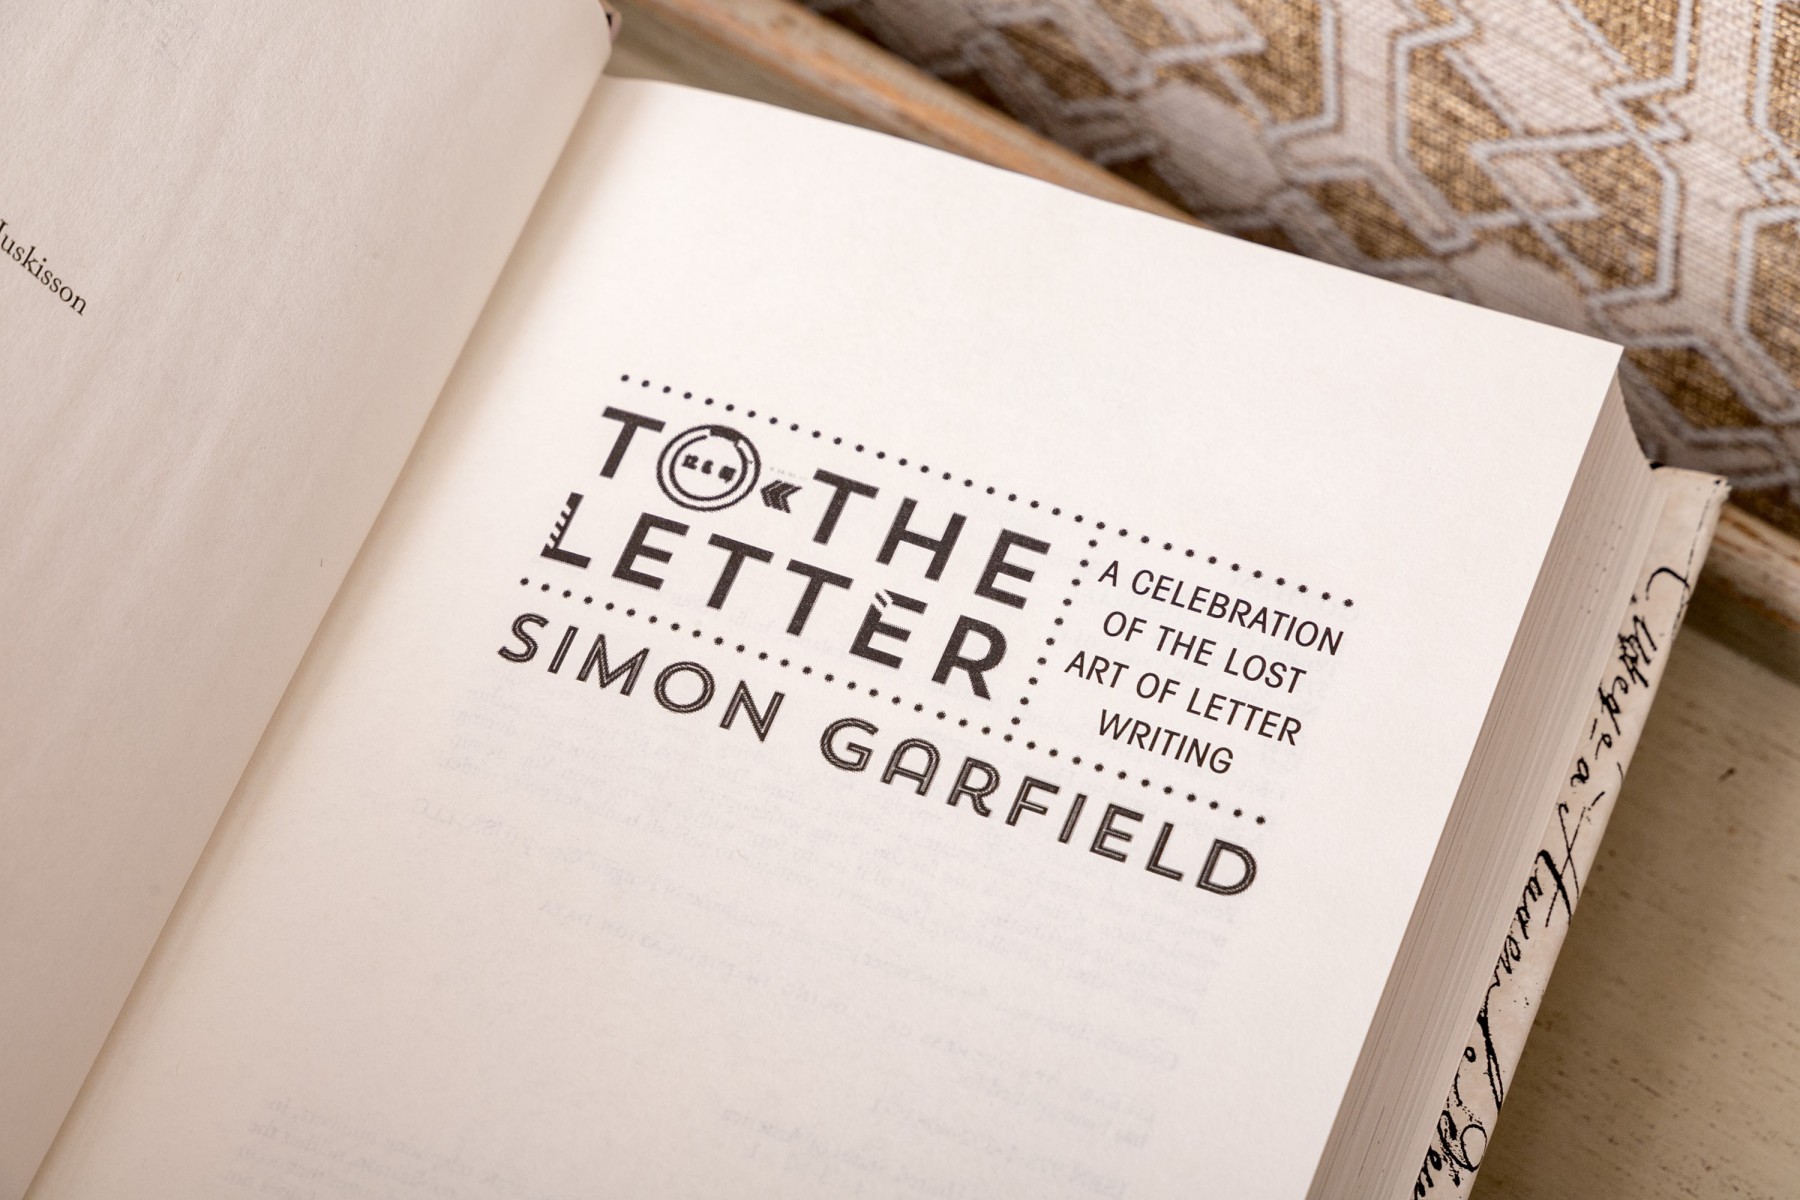 TO THE
LETTER
A CELEBRATION
OF THE LOST
ART OF LETTER
WRITING
SIMON GARFIELD